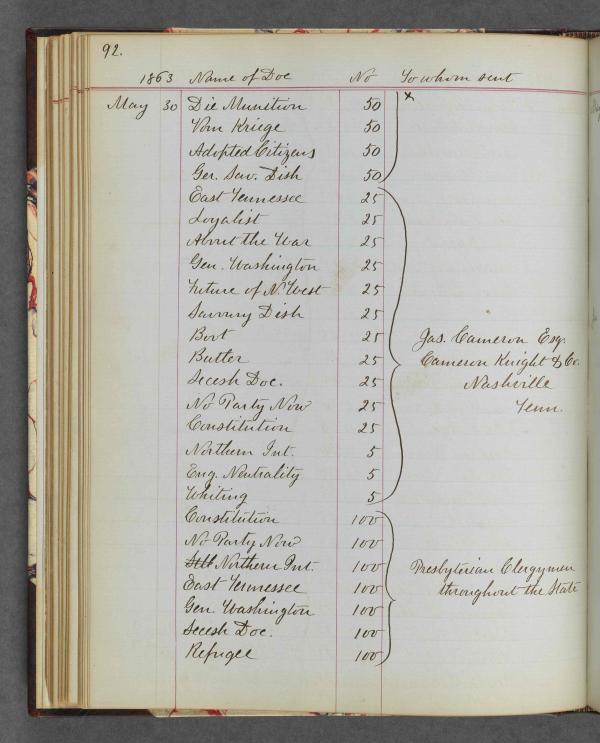 92.
1863 Name of Doc No To whom sent
May 30 Die Munition 50 x
Vom Kriege 50
Adopted Citizens 50
Ger. Sav. Dish 50
East Tennessee 25
Loyalist 25
About the War 25
Gen. Washington 25
Future of N. West 25
Savoury Dish 25
Boot 25
Butler 25
Secesh Doc. 25
No Party Now 25
Constitution 25
Northern Int. 5
Eng. Neutrality 5
Whiting 5
Jas. Cameron Esq.
Cameron Knight & Co.
Nashville
Tenn.
Constitution 100
No Party Now 100
Northern Int. 100
East Tennessee 100
Gen. Washington 100
Secesh Doc. 100
Refugee 100
Presbyterian Clergymen
throughout the State